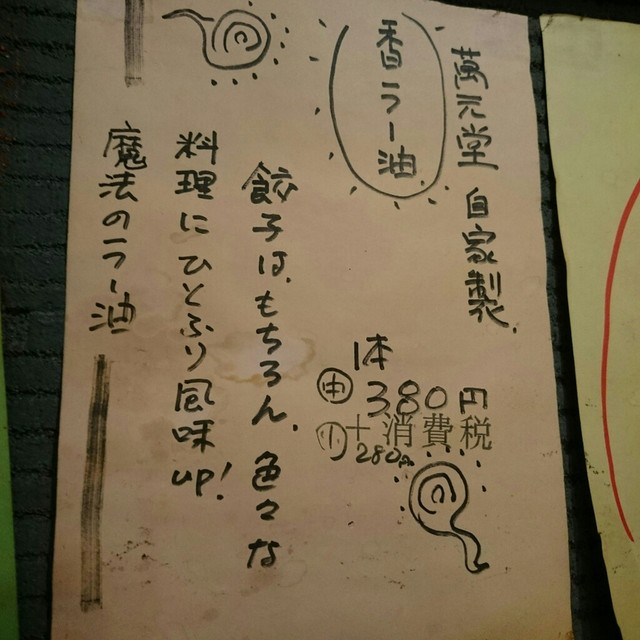 萬元堂 自家製
香ラー油
1本
中 380円
+消費税
小 280円
餃子は、もちろん、色々な
料理にひとふり風味
up!
魔法のラー油